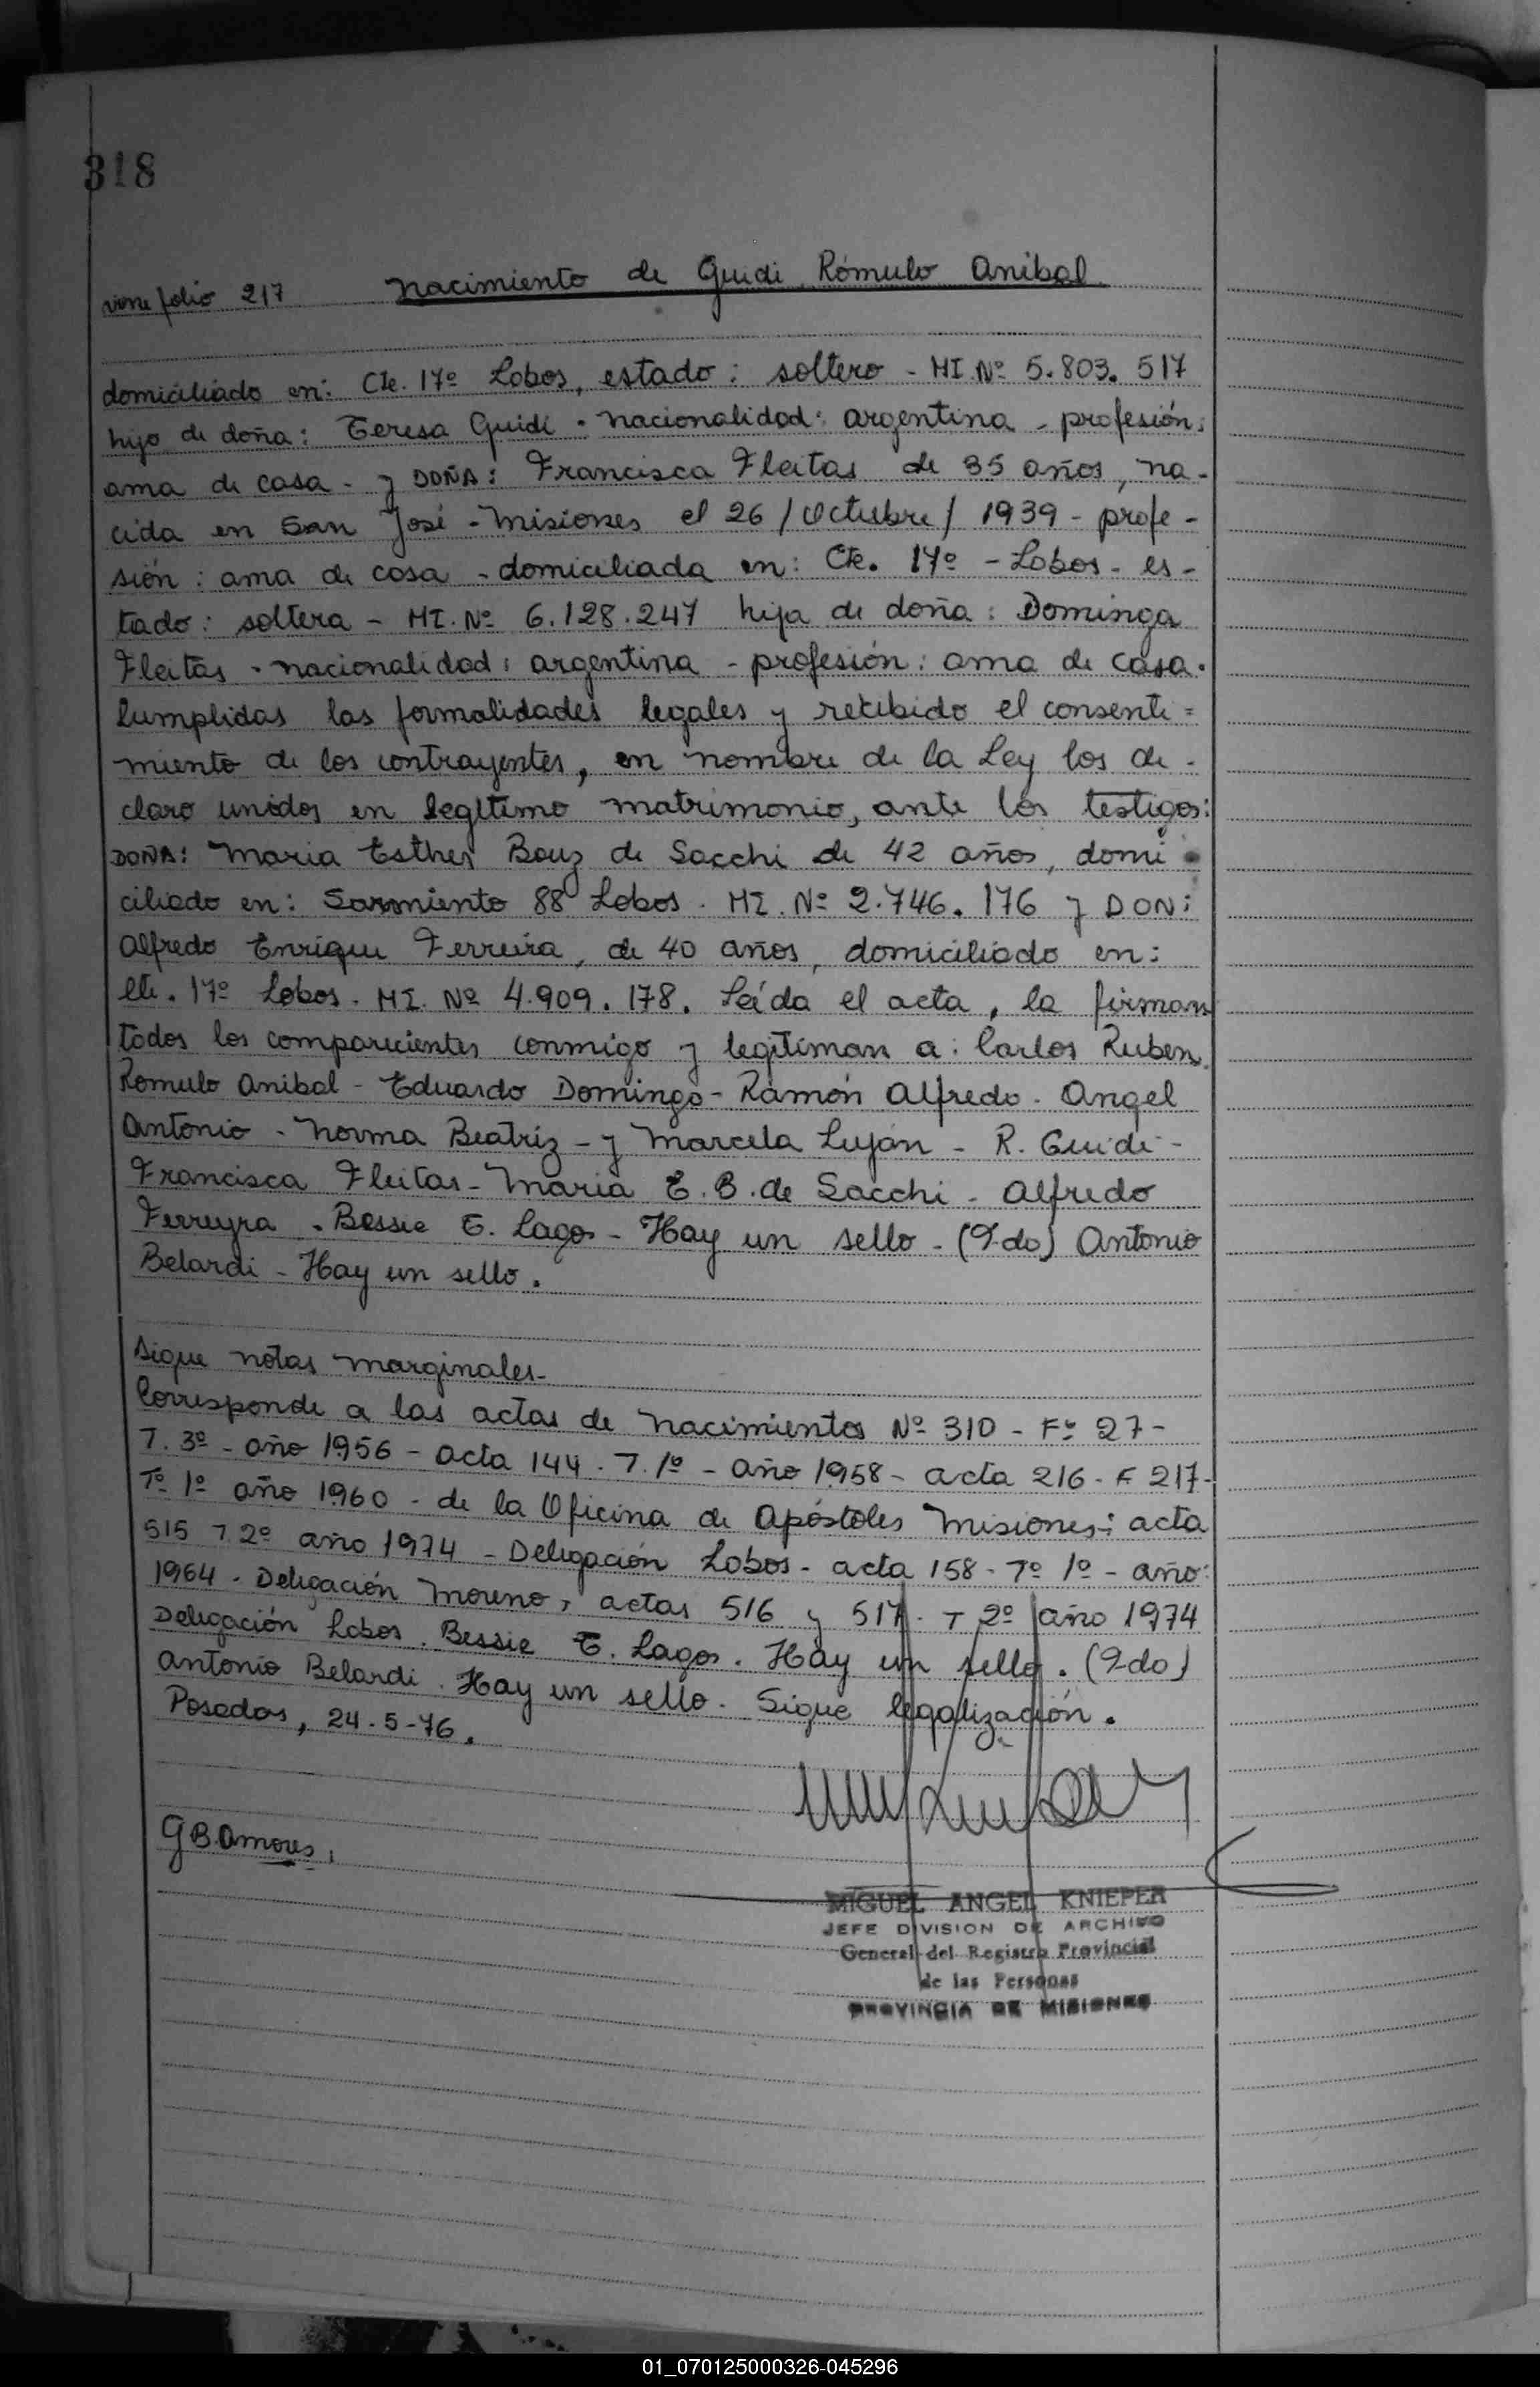 318
viene folio 217 Nacimiento de Guidi Rómulo Anibal
domiciliado en: Cte. 17º Lobos, estado: soltero - MI Nº 5.803.517
hijo de doña: Teresa Guidi - nacionalidad: argentina - profesión:
ama de casa - y DOÑA: Francisca Fleitas de 35 años, na-
cida en San José - Misiones el 26/Octubre/1939 - profe-
sión: ama de casa - domiciliada en: Cte. 17º - Lobos - es-
tado: soltera - MI. Nº 6.128.247 hija de doña: Dominga
Fleitas - nacionalidad: argentina - profesión: ama de casa.
Cumplidas las formalidades legales y recibido el consenti=
miento de los contrayentes, en nombre de la Ley los de-
claro unidos en legítimo matrimonio, ante los testigos:
DOÑA: Maria Esther Bouz de Sacchi de 42 años, domi
ciliado en: Sarmiento 88 Lobos. MI. Nº 2.746.176 y DON:
Alfredo Enrique Ferreira, de 40 años, domiciliado en:
Cte. 17º Lobos. MI. Nº 4.909.178. Leída el acta, la firman
todos los comparecientes conmigo y legitiman a: Carlos Ruben
Romulo Anibal - Eduardo Domingo - Ramón Alfredo - Angel
Antonio - Norma Beatriz - y Marcela Luján - R. Guidi -
Francisca Fleitas - Maria E. B. de Sacchi - Alfredo
Ferreyra - Bessie E. Lagos - Hay un sello - (Fdo) Antonio
Belardi - Hay un sello.
Sigue notas marginales-
Corresponde a las actas de nacimientos Nº 310 - Fº 27 -
T. 3º - año 1956 - acta 144 - T. 1º - año 1958 - acta 216 - F 217-
Tº 1º año 1960 - de la Oficina de Apóstoles Misiones; acta
515 T 2º año 1974 - Delegación Lobos - acta 158 - Tº 1º - año
1964 - Delegación Moreno, actas 516 y 517. T 2º año 1974
Delegación Lobos. Bessie E. Lagos. Hay un sello. (Fdo)
Antonio Belardi. Hay un sello. Sigue legalización.
Posadas, 24-5-76.
G B. Amores
MIGUEL ANGEL KNIEPER
JEFE DIVISION DE ARCHIVO
General del Registro Provincial
de las Personas
PROVINCIA DE MISIONES
01_070125000326-045296